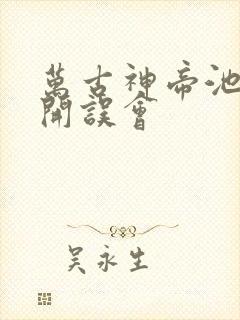 萬古神帝池
開誤會
吳永生